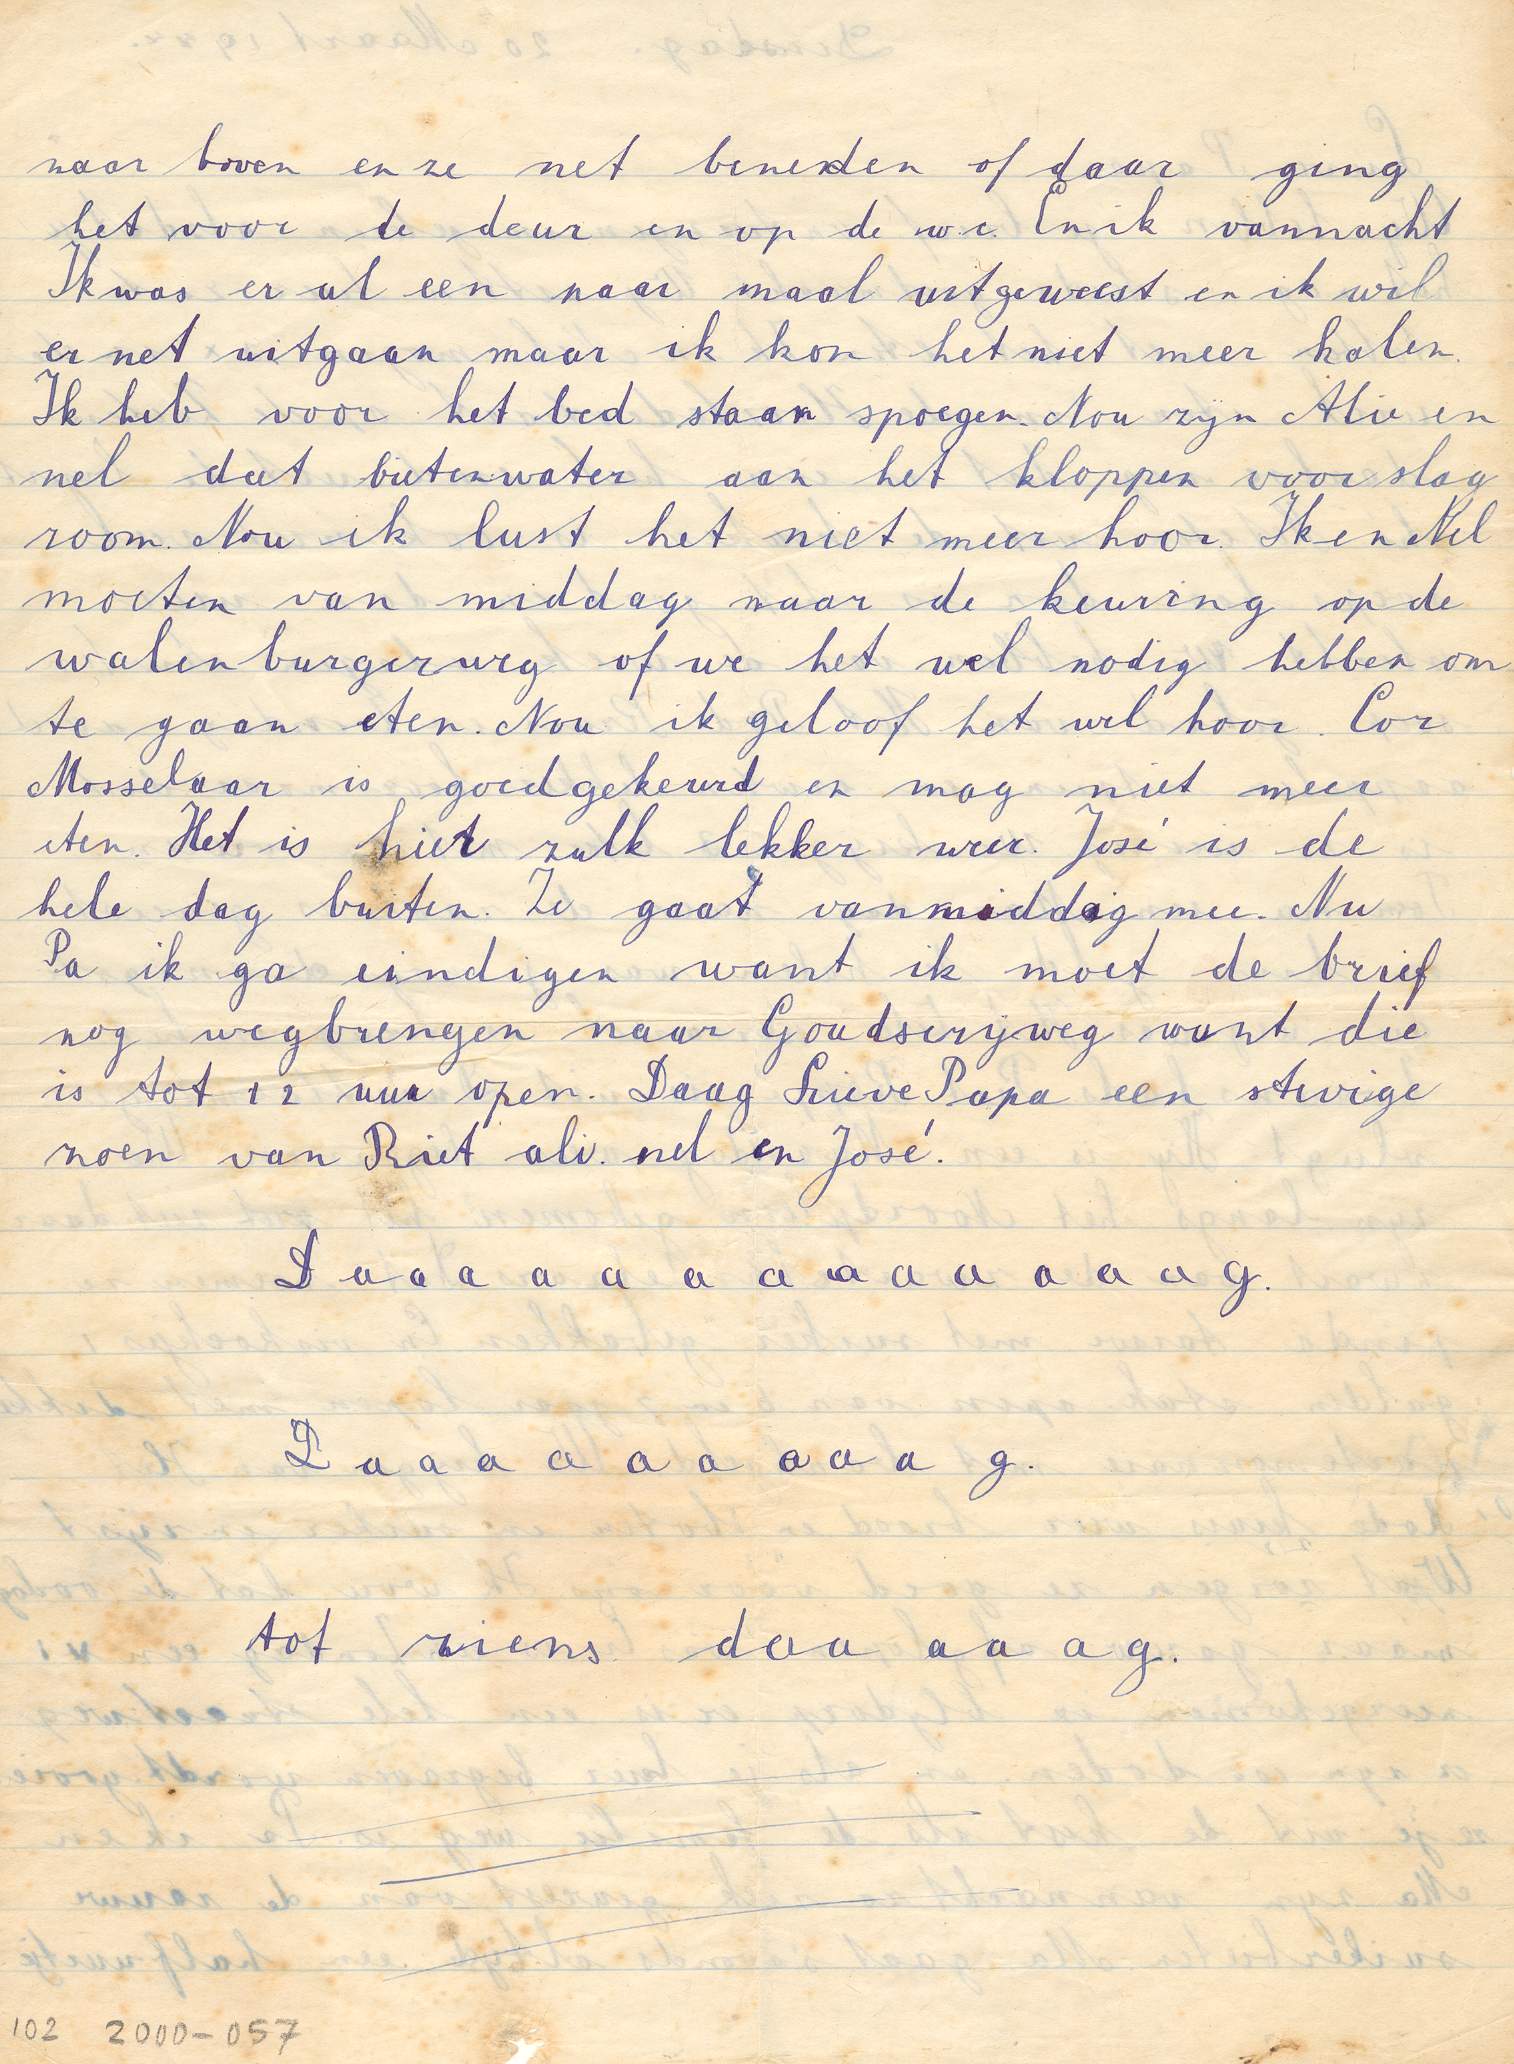 naar boven en ze net beneden of daar ging
het voor de deur en op de w.c. En ik vannacht
Ik was er al een paar maal uitgeweest en ik wil
er net uitgaan maar ik kon het niet meer halen.
Ik heb voor het bed staan spoegen. Nou zijn Alie en
nel dat bietenwater aan het kloppen voor slag
room. Nou ik lust het niet meer hoor. Ik en Nel
moeten van middag naar de keuring op de
walenburgerweg of we het wel nodig hebben om
te gaan eten. Nou ik geloof het wel hoor. Cor
Mosselaar is goedgekeurd en mag niet meer
eten. Het is hier zulk lekker weer. José is de
hele dag buiten. Ze gaat vanmiddag mee. Nu
Pa ik ga eindigen want ik moet de brief
nog wegbrengen naar Goudserijweg want die
is tot 12 uur open. Daag Lieve Papa een stevige
zoen van Riet ali. nel en José.
D a a a a a a a a a a a a a a g.
D a a a a a a a a a g.
tot ziens daa aa ag.
102 2000-057